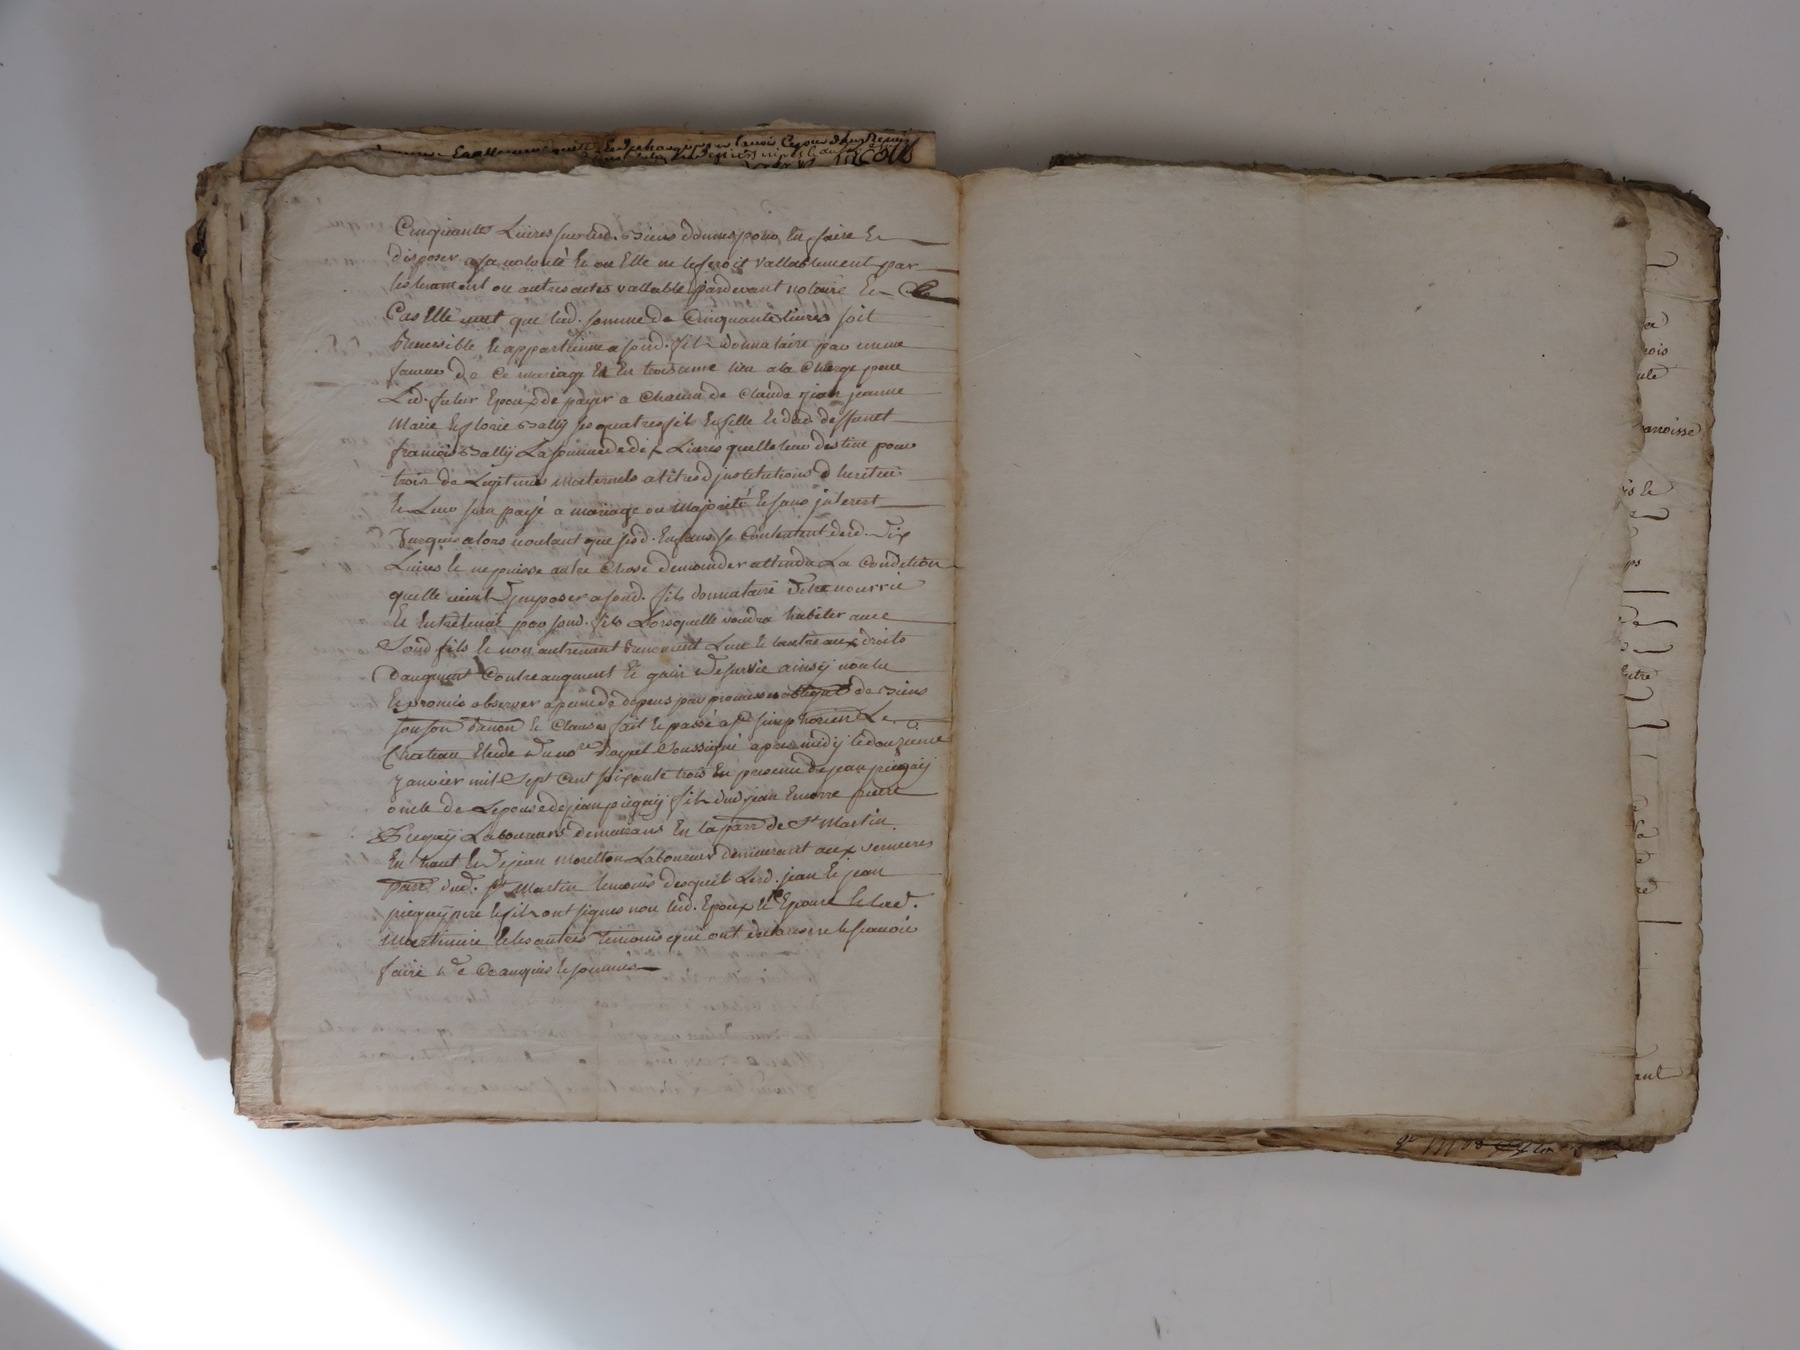 Cinquante Livres sur lesd. Biens donnés pour En faire Et
disposer a sa volonté Et ou Elle ne le feroit vallablement par
testament ou autres actes vallable pardevant notaire En Ce
Cas Elle veut que lad. somme de Cinquante livres soit
Reversible Et appartienne a sond. fils donnataire par
faveur de Ce mariage Et En troisieme lieu a la Charge pour
Led. futur Epoux de payer a Chacun de Claude jean jeanne
Marie Et florie Bally ses quatres fils Et fille Et dud. deffunt
francois Bally La somme de dix Livres quelle leur destine pour
de Legitimes Maternels a titre d'institutions d heritier
Et Leur sera payé a mariage ou Majorité Et sans jnterest
Jusques alors voulant que sesd. Enfans se Contentent desd. Dix
Livres Et ne puisse autre Chose demander attendu La Condition
quelle vient D'jmposer a sond. fils donnataire D'etre nourrie
Et Entretenue par sond. fils Lorsquelle voudra habiter avec
Sond fils Et non autrement Renoncent Lun Et Lautre aux droits
Daugment Contreaugment Et gain De survie ainsy voulu
Et promis observer a peine de depens par promesses obligat de Biens
Et Clauses fait Et passé a St simphorien Le
Chateau Etude Du nore Royal Soussigné apres midy le douzieme
Janvier mil Sept Cent soixante trois En presence de jean piegay
oncle de Lepouse de jean piegaÿ fils dud jean Encorre pierre
Piegaÿ Laboureurs demeurans En la parr de St Martin
En haut Et De jean Moretton Laboureur demeurant aux verrieres
parr dud. St Martin temoins desquels Lesd. jean Et jean
piegaÿ pere Et fils ont signes non lesd. Epoux Et Epouse Et lad.
Et les autres temoins qui ont declarés ne le scavoir
faire De Ce anquis Et sommés